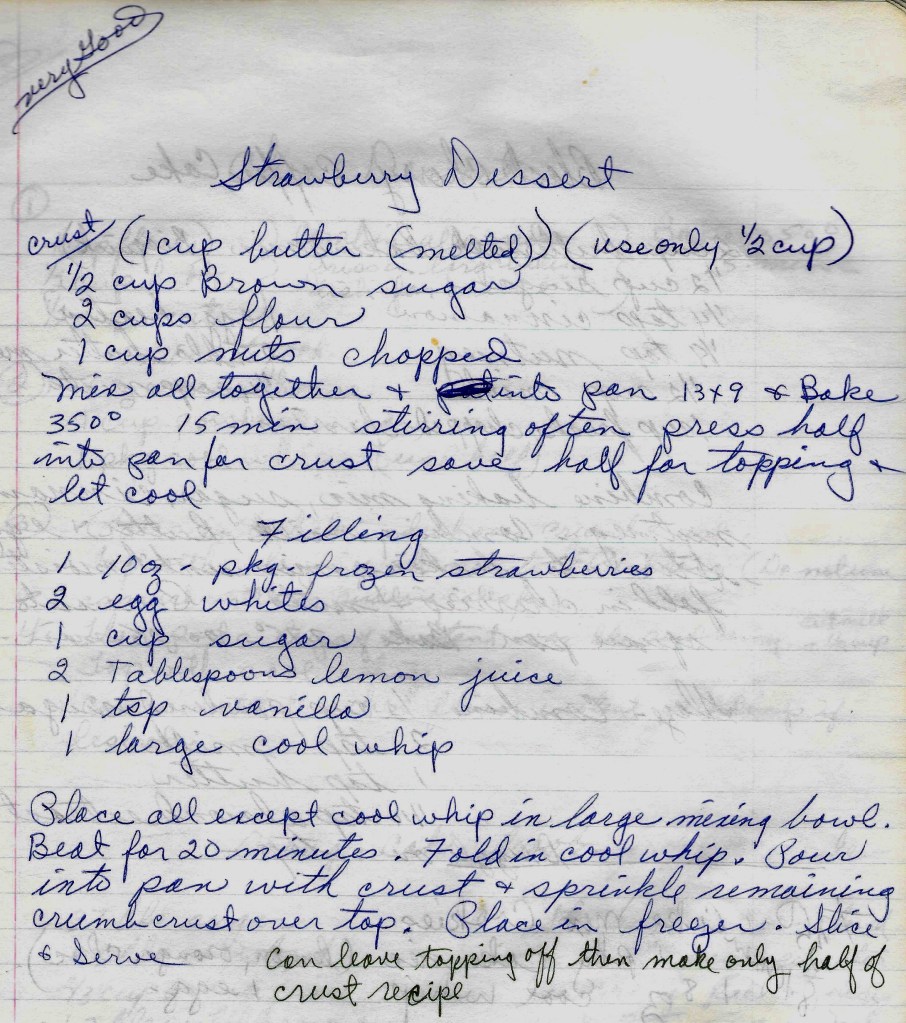 very Good
Strawberry Dessert
crust (1 cup butter (melted)) (use only 1/2 cup)
1/2 cup Brown sugar
2 cups flour
1 cup nuts chopped
Mix all together + into pan 13x9 & Bake
350° 15 min stirring often press half
into pan for crust save half for topping +
let cool
Filling
1 10oz - pkg. frozen strawberries
2 egg whites
1 cup sugar
2 Tablespoons lemon juice
1 tsp vanilla
1 large cool whip
Place all except cool whip in large mixing bowl.
Beat for 20 minutes. Fold in cool whip. Pour
into pan with crust + sprinkle remaining
crumb crust over top. Place in freezer. Slice
& Serve
Can leave topping off then make only half of
crust recipe